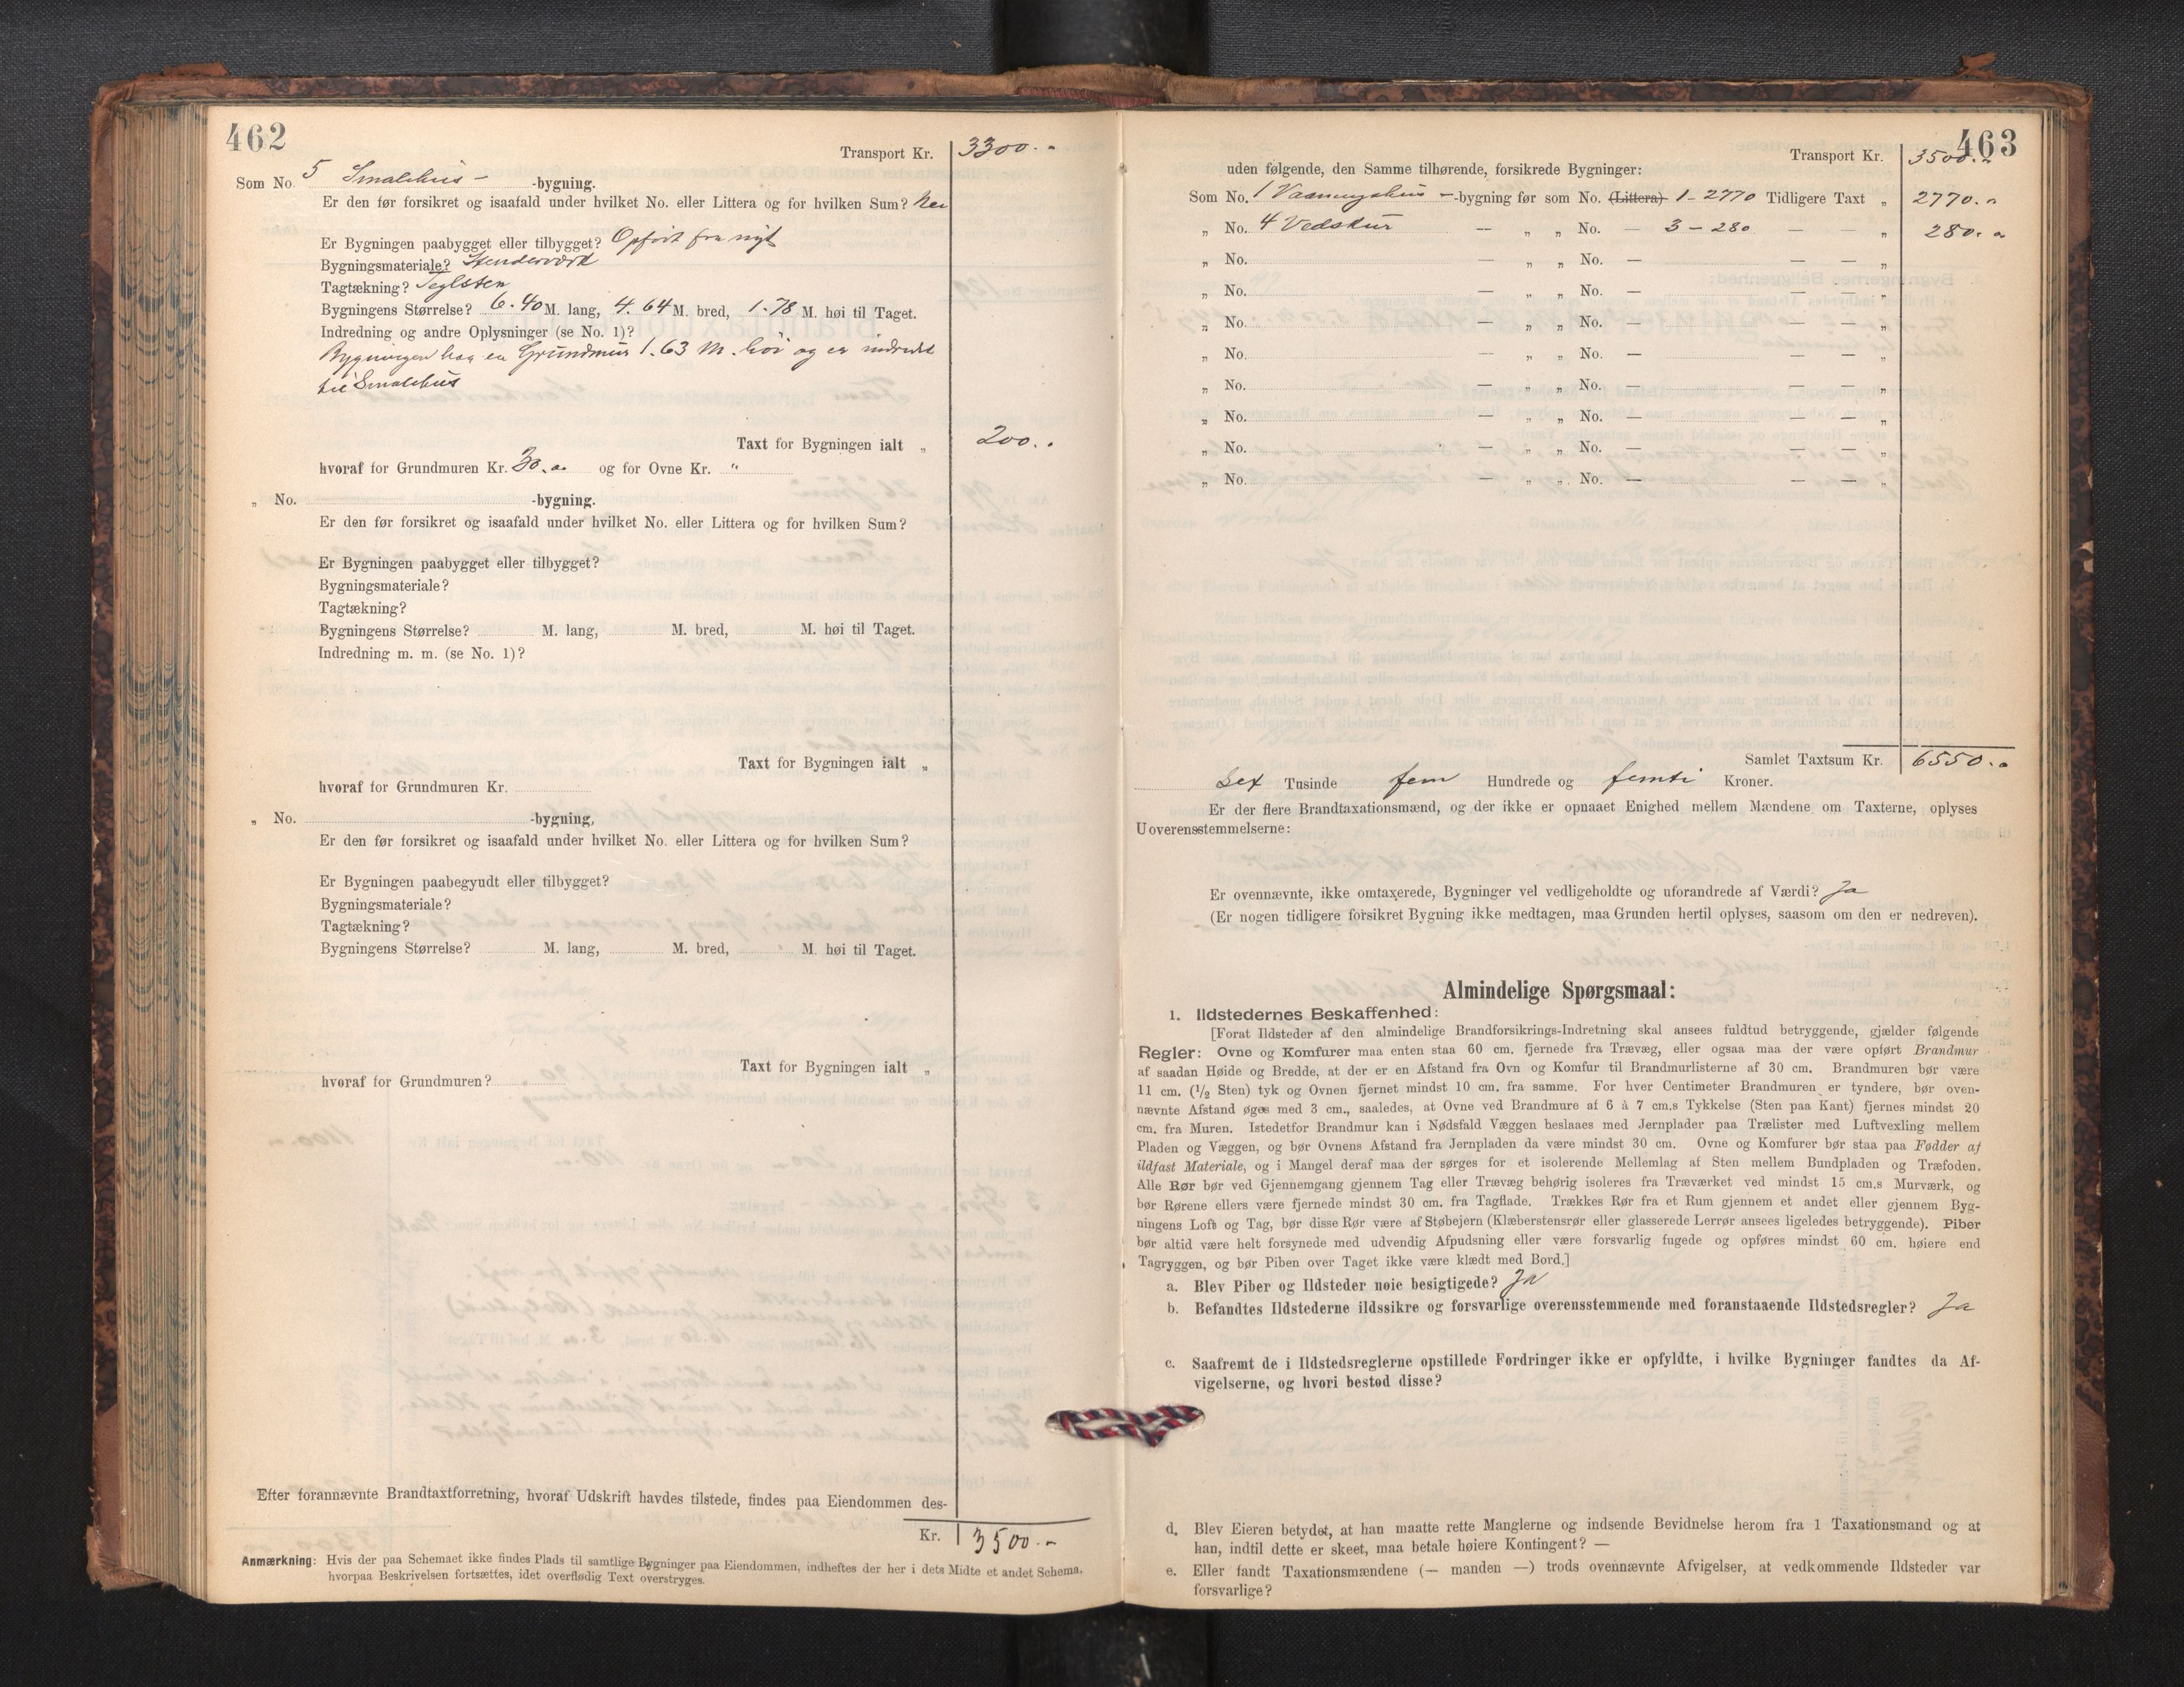 462
Transport Kr. 3300.-
Som No. 5 Smalehus - -bygning.
Er den før forsikret og isaafald under hvilket No. eller Littera og for hvilken Sum? Nei
Er Bygningen paabygget eller tilbygget? Opført fra nyt
Bygningsmateriale? Stenderværk
Tagtækning? Teglsten
Bygningens Størrelse? 6.40 M. lang, 4.64 M. bred, 1.78 M. høi til Taget.
Indredning og andre Oplysninger (se No. 1)?
Bygningen har en Grundmur 1.63 M. høi og er indredet
til Smalehus
Taxt for Bygningen ialt „ 200..
hvoraf for Grundmuren Kr. 30.00 og for Ovne Kr. "
„ No. -bygning.
Er den før forsikret og isaafald under hvilket No. eller Littera og for hvilken Sum?
Er Bygningen paabygget eller tilbygget?
Bygningsmateriale?
Tagtækning?
Bygningens Størrelse? M. lang, M. bred, M. høi til Taget.
Indredning m. m. (se No. 1)?
Taxt for Bygningen ialt „
hvoraf for Grundmuren Kr.
„ No. -bygning,
Er den før forsikret og isaafald under hvilket No. eller Littera og for hvilken Sum?
Er Bygningen paabegyudt eller tilbygget?
Bygningsmateriale?
Tagtækning?
Bygningens Størrelse? M. lang, M. bred, M. høi til Taget.
Taxt for Bygningen ialt „
hvoraf for Grundmuren?
Efter forannævnte Brandtaxtforretning, hvoraf Udskrift havdes tilstede, findes paa Eiendommen des-
Kr. 3500.-
Anmærkning: Hvis der paa Schemaet ikke findes Plads til samtlige Bygninger paa Eiendommen, indheftes der her i dets Midte et andet Schema,
hvorpaa Beskrivelsen fortsættes, idet overflødig Text overstryges.
463
Transport Kr. 3500.-
uden følgende, den Samme tilhørende, forsikrede Bygninger:
Som No. 1 Vaaningshus - -bygning før som No. (Littera) 1-2770 Tidligere Taxt „ 2770.-
„ No. 4 Vedskur — „ „ No. — 3-280 — — „ 280.-
„ No. — „ „ No. — — — „
„ No. — „ „ No. — — — „
„ No. — „ „ No. — — — „
„ No. — „ „ No. — — — „
„ No. — „ „ No. — — — „
„ No. — „ „ No. — — — „
„ No. — „ „ No. — — — „
„ No. — „ „ No. — — — „
Samlet Taxtsum Kr. 6550.-
Sex Tusinde fem Hundrede og femti Kroner.
Er der flere Brandtaxationsmænd, og der ikke er opnaaet Enighed mellem Mændene om Taxterne, oplyses
Uoverensstemmelserne:
Er ovennævnte, ikke omtaxerede, Bygninger vel vedligeholdte og uforandrede af Værdi? Ja
(Er nogen tidligere forsikret Bygning ikke medtagen, maa Grunden hertil oplyses, saasom om den er nedreven).
Almindelige Spørgsmaal:
1. Ildstedernes Beskaffenhed:
[Forat Ildsteder af den almindelige Brandforsikrings-Indretning skal ansees fuldtud betryggende, gjælder følgende
Regler: Ovne og Komfurer maa enten staa 60 cm. fjernede fra Trævæg, eller ogsaa maa der være opført Brandmur
af saadan Høide og Bredde, at der er en Afstand fra Ovn og Komfur til Brandmurlisterne af 30 cm. Brandmuren bør være
11 cm. (1/2 Sten) tyk og Ovnen fjernet mindst 10 cm. fra samme. For hver Centimeter Brandmuren er tyndere, bør oven-
nævnte Afstand øges med 3 cm., saaledes, at Ovne ved Brandmure af 6 à 7 cm.s Tykkelse (Sten paa Kant) fjernes mindst 20
cm. fra Muren. Istedetfor Brandmur kan i Nødsfald Væggen beslaaes med Jernplader paa Trælister med Luftvexling mellem
Pladen og Væggen, og bør Ovnens Afstand fra Jernpladen da være mindst 30 cm. Ovne og Komfurer bør staa paa Fødder af
ildfast Materiale, og i Mangel deraf maa der sørges for et isolerende Mellemlag af Sten mellem Bundpladen og Træfoden.
Alle Rør bør ved Gjennemgang gjennem Tag eller Trævæg behørig isoleres fra Træværket ved mindst 15 cm.s Murværk, og
bør Rørene ellers være fjernede mindst 30 cm. fra Tagflade. Trækkes Rør fra et Rum gjennem et andet eller gjennem Byg-
ningens Loft og Tag, bør disse Rør være af Støbejern (Klæberstensrør eller glasserede Lerrør ansees ligeledes betryggende). Piber
bør altid være helt forsynede med udvendig Afpudsning eller være forsvarlig fugede og opføres mindst 60 cm. høiere end
Tagryggen, og bør Piben over Taget ikke være klædt med Bord.]
a. Blev Piber og Ildsteder nøie besigtigede? Ja
b. Befandtes Ildstederne ildssikre og forsvarlige overensstemmende med foranstaaende Ildstedsregler? Ja
c. Saafremt de i Ildstedsreglerne opstillede Fordringer ikke er opfyldte, i hvilke Bygninger fandtes da Af-
vigelserne, og hvori bestod disse?
d. Blev Eieren betydet, at han maatte rette Manglerne og indsende Bevidnelse herom fra 1 Taxationsmand og at
han, indtil dette er skeet, maa betale høiere Kontingent? —
e. Eller fandt Taxationsmændene (— manden —) trods ovennævnte Afvigelser, at vedkommende Ildsteder var
forsvarlige?